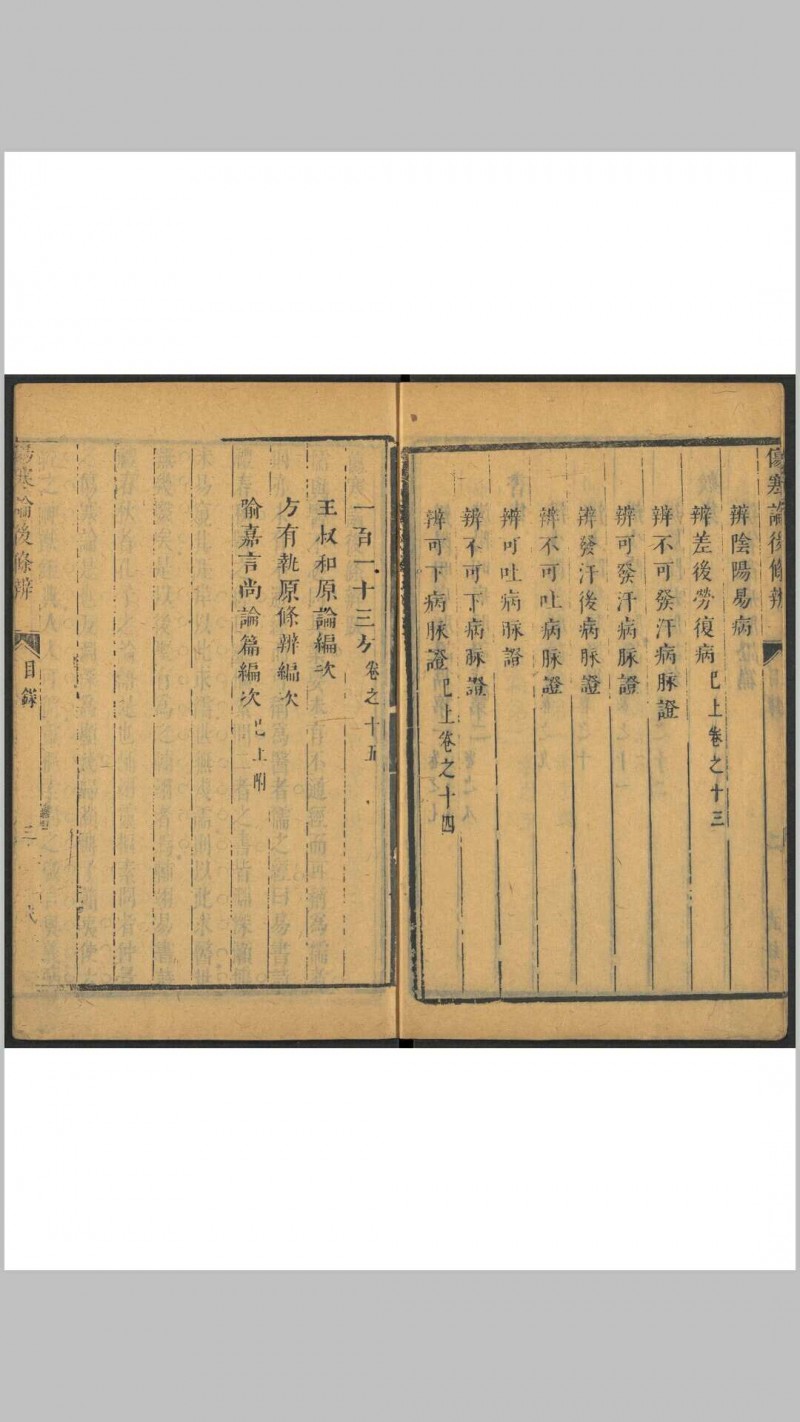 傷寒論後條辨
辨陰陽易病
辨差後勞復病 已上卷之十三
辨不可發汗病脈證
辨可發汗病脈證
辨發汗後病脈證
辨不可吐病脈證
辨可吐病脈證
辨不可下病脈證
辨可下病脈證 已上卷之十四
一百一十三方 卷之十五
王叔和原論編次
方有執原條辨編次
喻嘉言尚論篇編次 已上附
傷寒論後條辨 目錄 三